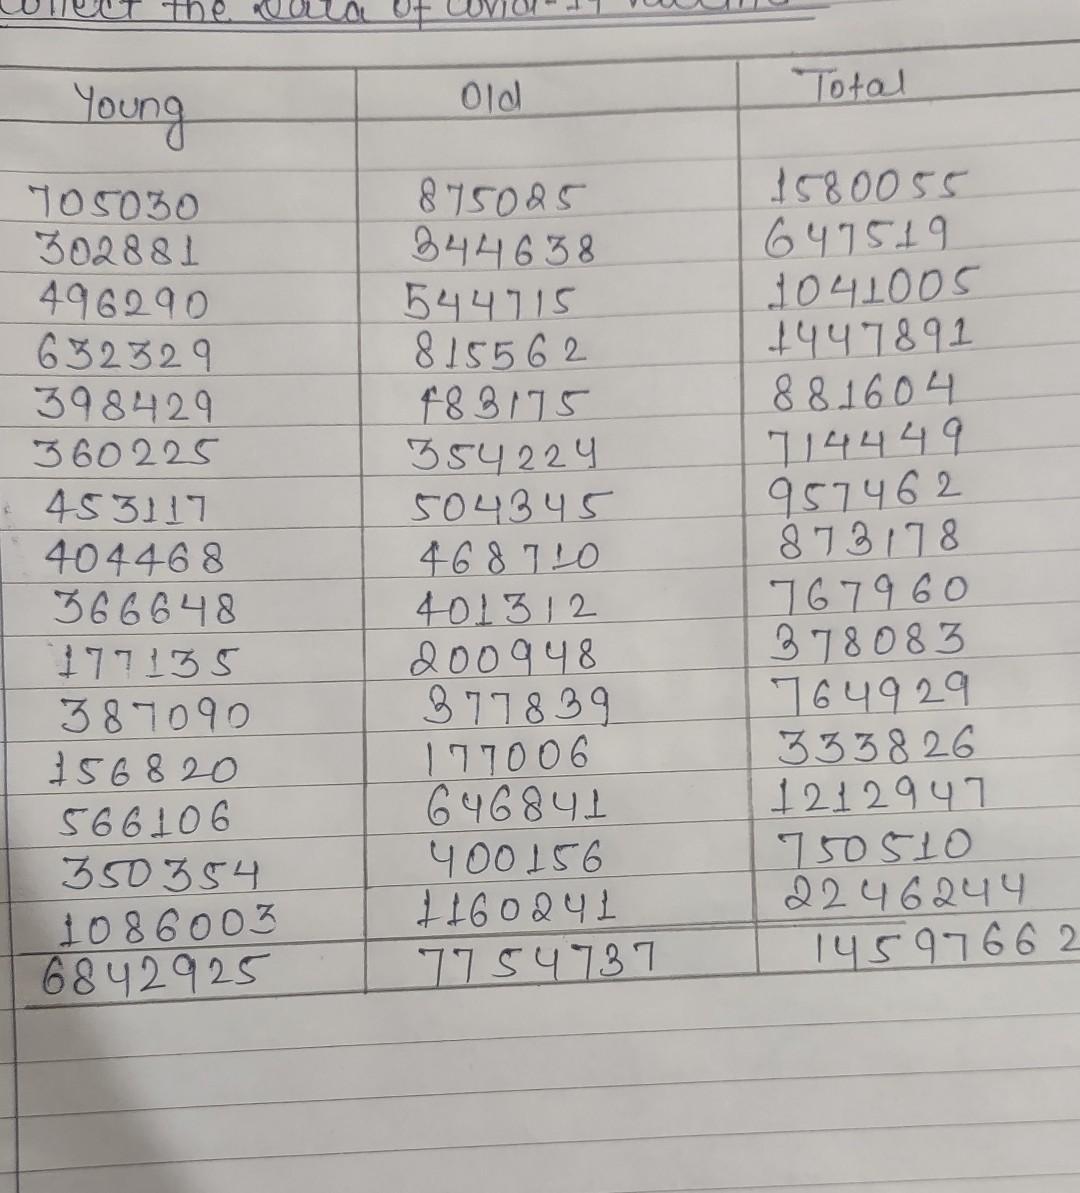 collect the Data of Covid-19
Young Old Total
705030 875025 1580055
302881 344638 647519
496290 544715 1041005
632329 815562 1447891
398429 483175 881604
360225 354224 714449
453117 504345 957462
404468 468710 873178
366648 401312 767960
177135 200948 378083
387090 377839 764929
156820 177006 333826
566106 646841 1212947
350354 400156 750510
1086003 1160241 2246244
6842925 7754737 14597662